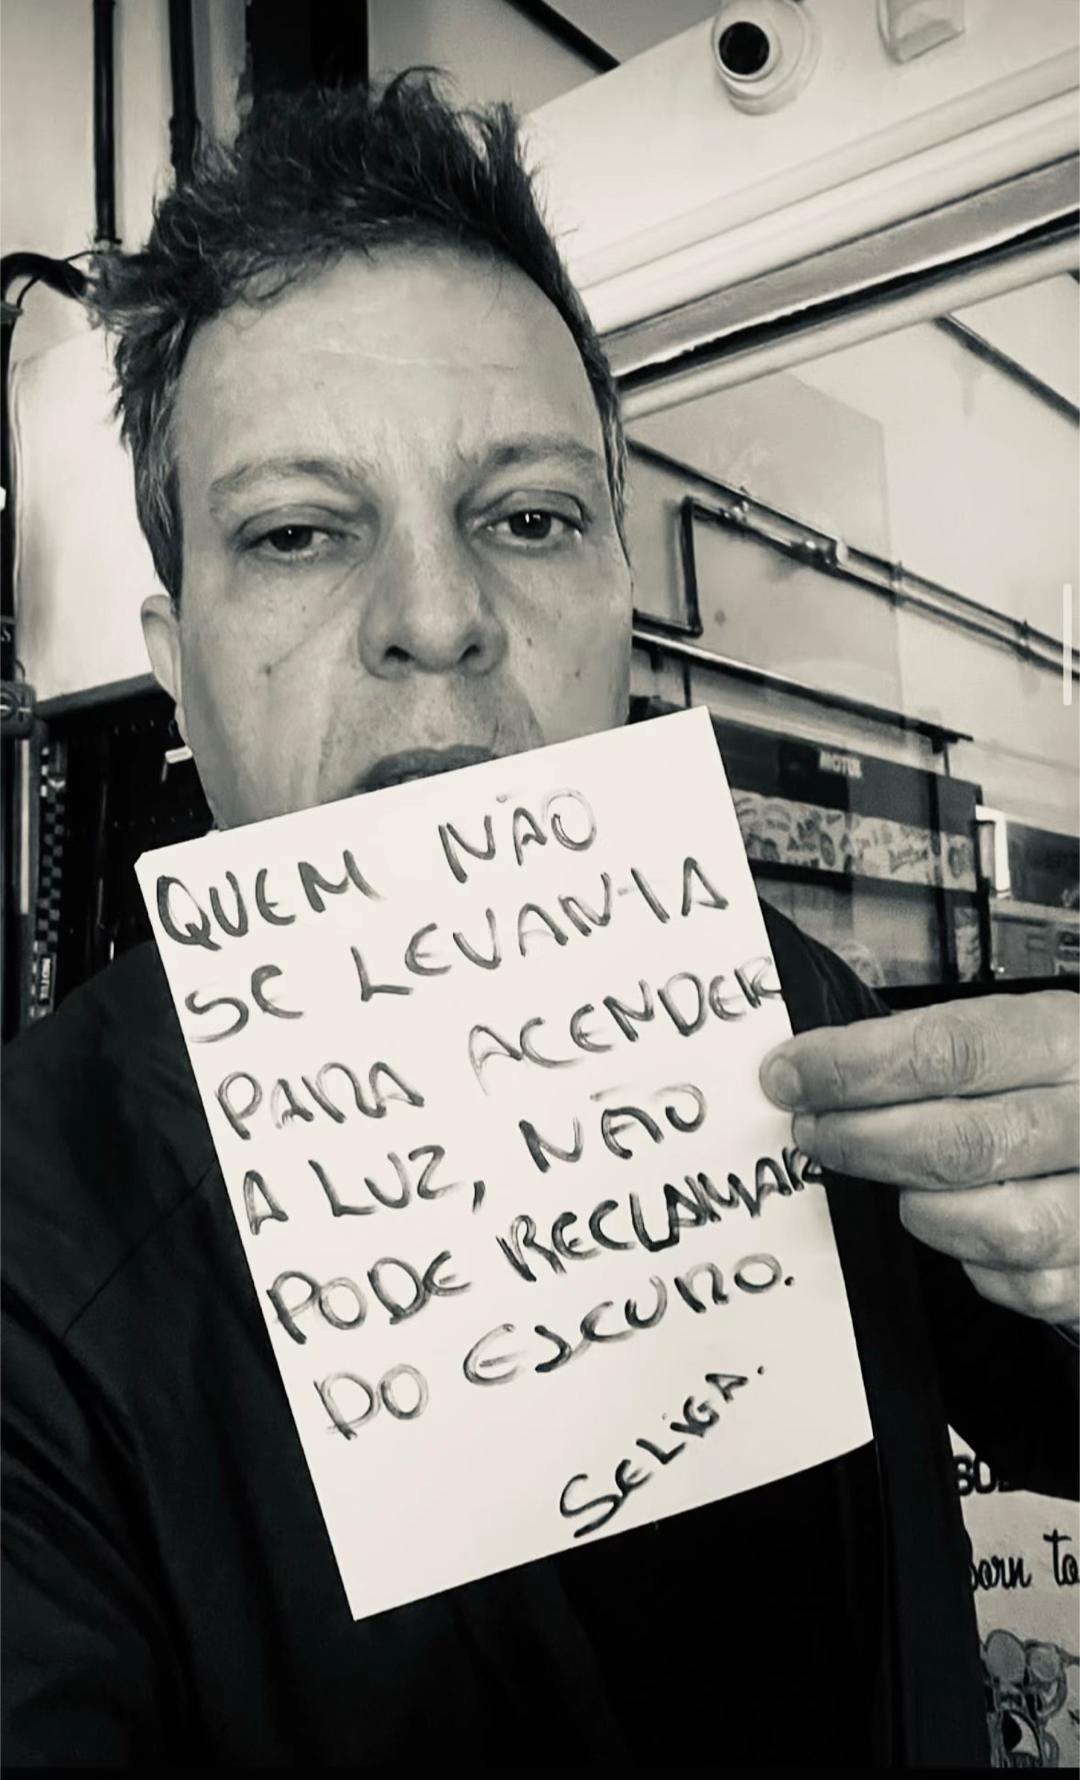 MOTUL
QUEM NÃO
SE LEVANTA
PARA ACENDER
A LUZ, NÃO
PODE RECLAMAR
DO ESCURO.
SELIGA.
to